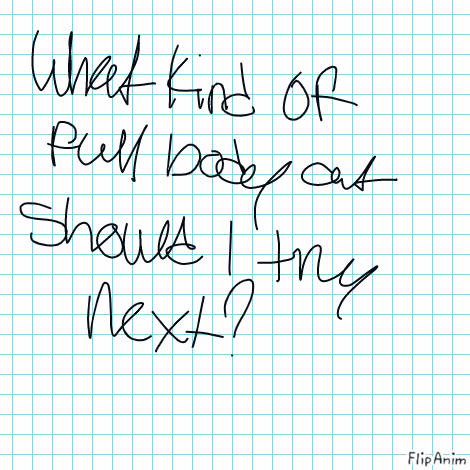 What kind of
full body cat
should I try
next?
FlipAnim